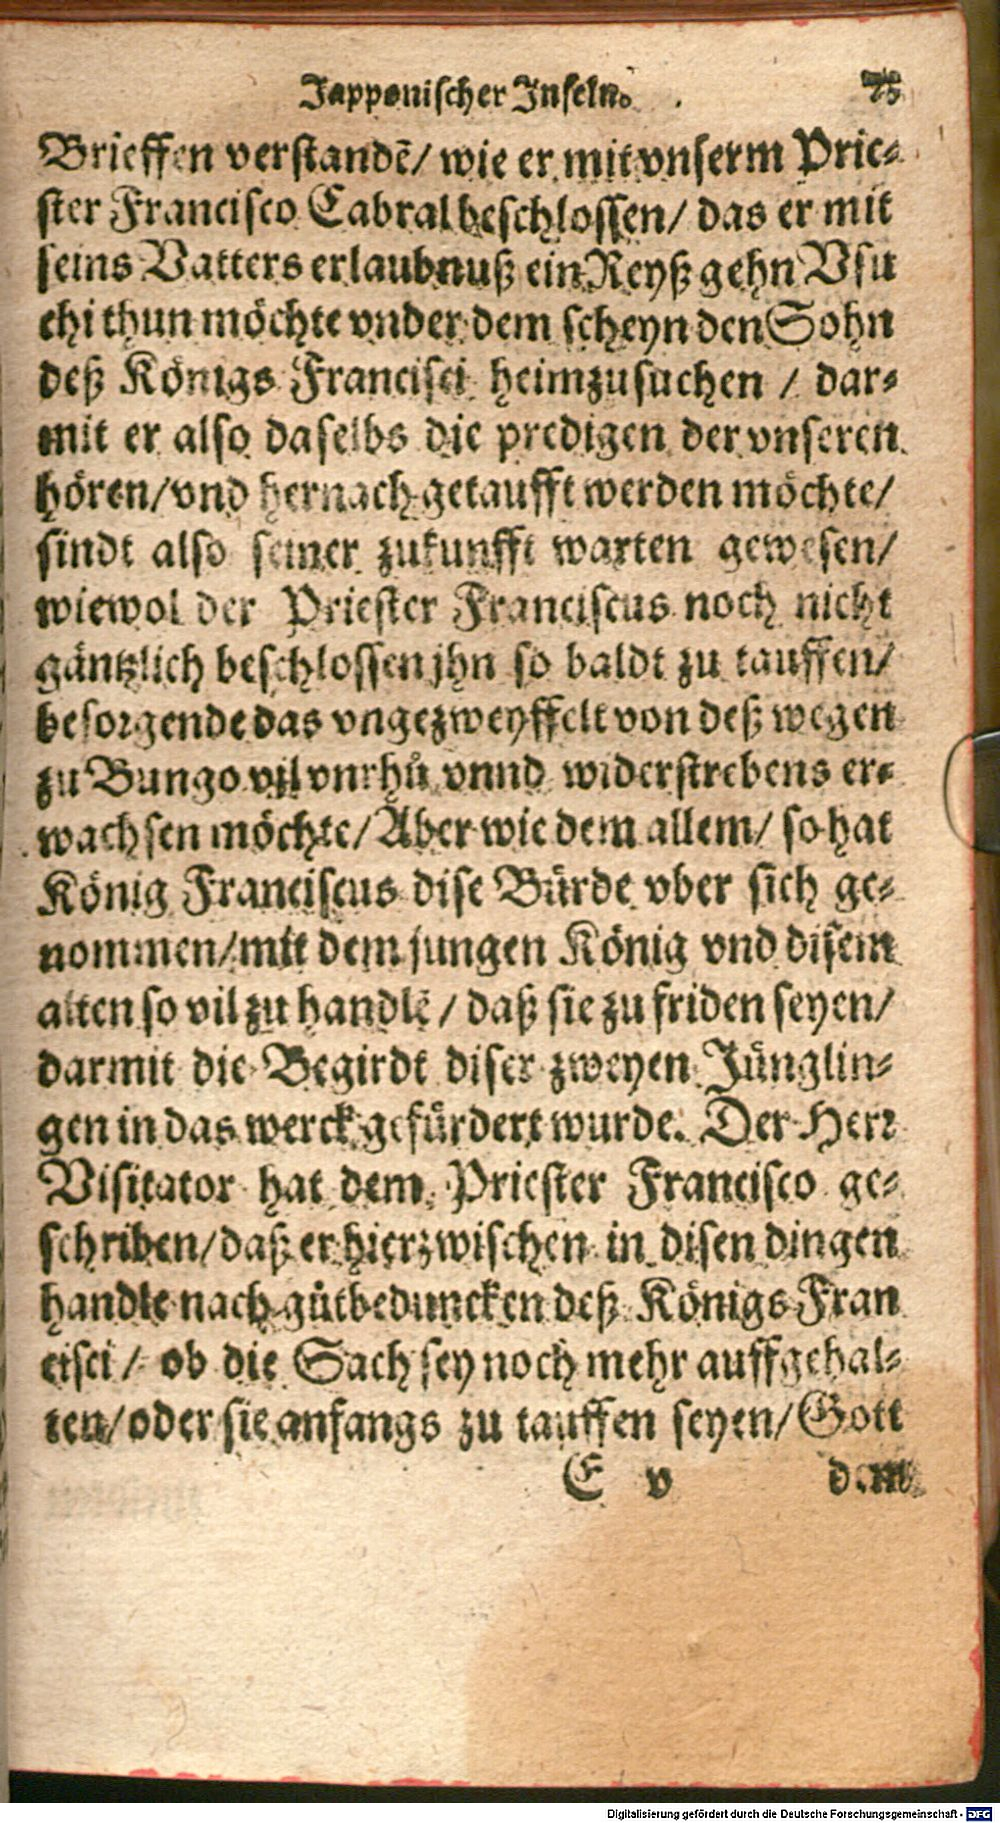 Japponischer Inseln.
Brieffen verstandẽ/ wie er mit vnserm Prie-
ster Francisco Cabral beschlossen/ das er mit
seins Vatters erlaubnuß ein Reyß gehn Vsu
chi thun möchte vnder dem scheyn den Sohn
deß Königs Francisci heimzusuchen / dar-
mit er also daselbs die predigen der vnseren
hören/vnd hernach getaufft werden möchte/
sindt also seiner zukunfft warten gewesen/
wiewol der Priester Franciscus noch nicht
gäntzlich beschlossen jhn so baldt zu tauffen/
besorgende das vngezweyffelt von deß wegen
zu Bungo vil vnrhů vnnd widerstrebens er-
wachsen möchte/ Aber wie dem allem/ so hat
König Franciscus dise Bürde vber sich ge-
nommen/mit dem jungen König vnd disem
alten so vil zu handlẽ / daß sie zu friden seyen/
darmit die Begirdt diser zweyen Jünglin-
gen in das werck gefürdert wurde. Der Herr
Visitator hat dem Priester Francisco ge-
schriben/daß er hierzwischen in disen dingen
handle nach gůtbeduncken deß Königs Fran
cisci / ob die Sach sey noch mehr auffgehal-
ten/oder sie anfangs zu tauffen seyen/ Gott
E v dem
Digitalisierung gefördert durch die Deutsche Forschungsgemeinschaft - DFG